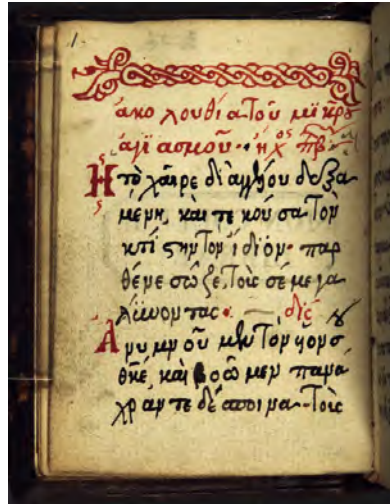 1.
ἀκολουθία τοῦ μϊκροῦ
ἁγϊασμοῦ· ἦχος
Ἡ τὸ χαῖρε δι ἀγγέλου δεξα
μένη, καὶ τεκοῦσα τὸν
κτίστην τὸν ἴδιον· παρ
θένε σῶζε, τοὺς σὲ μεγα
λύνοντας· δίς
Ἀνυμνοῦμεν τὸν υἱόν σου
θκὲ, καὶ βοῶμεν πανά
χραντε δέσποινα τοὺς